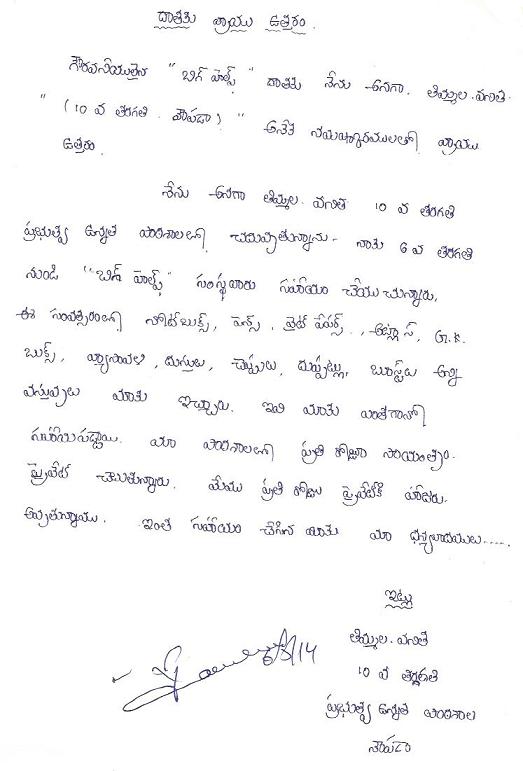 దాతకు వ్రాయు ఉత్తరం.
గౌరవనీయులైన "బిగ్ హెల్ప్" దాతకు నేను అనగా. తిమ్మల. వనిత
"(10 వ తరగతి. సొపడా)" అనేక నమస్కారములతో వ్రాయు
ఉత్తరం.
నేను అనగా తిమ్మల. వనిత 10 వ తరగతి
ప్రభుత్వ ఉన్నత పాఠశాలలో చదువుతున్నాను. నాకు 6 వ తరగతి
నుండి "బిగ్ హెల్ప్" సంస్థవారు సహాయం చేయుచున్నారు,
ఈ సంవత్సరంలో నోట్‌బుక్స్, పెన్స్, వైట్ పేపర్స్., అట్లాస్, G.K.
బుక్స్, వ్యాసావళి, దుస్తులు, చెప్పులు, దుప్పట్లు, బూస్టు అన్ని
వస్తువులు మాకు ఇచ్చారు. ఇవి మాకు ఎంతగానో
సహాయపడ్డాయి. మా పాఠశాలలో ప్రతి రోజూ సాయంత్రం
ప్రైవేట్ చెబుతున్నారు. మేము ప్రతి రోజు ప్రైవేట్‌కి హాజరు
అవుతున్నాము. ఇంత సహాయం చేసిన మీకు మా ధన్యవాదములు.....
ఇట్లు
తిమ్మల. వనిత
10 వ తరగతి
ప్రభుత్వ ఉన్నత పాఠశాల
సొపడా